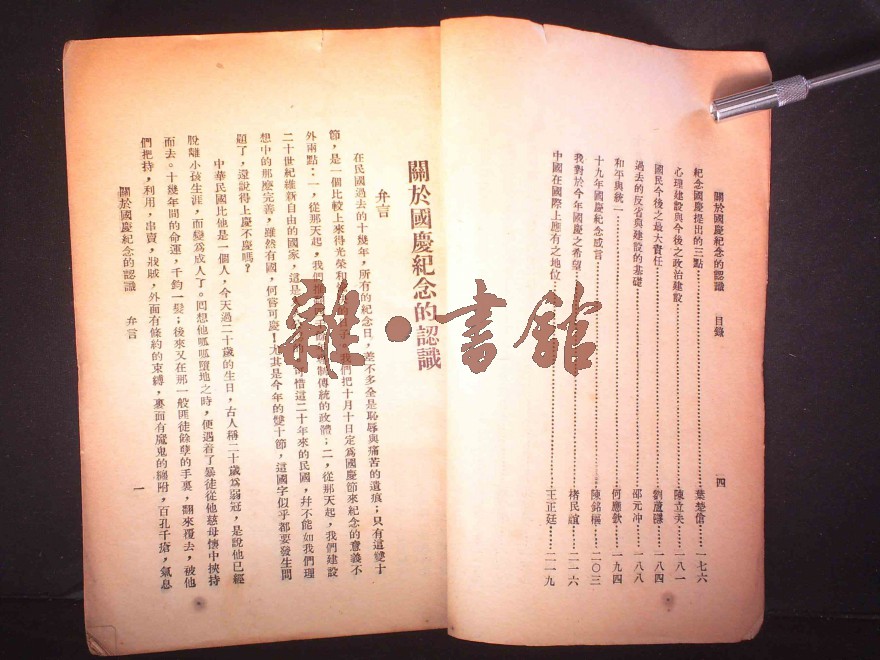 關於國慶紀念的認識　目錄　四
紀念國慶提出的三點……葉楚傖　一七六
心理建設與今後之政治建設……陳立夫　一八一
國民今後之最大責任……劉蘆隱　一八四
過去的反省與建設的基礎……邵元冲　一八八
和平與統一……何應欽　一九四
十九年國慶紀念感言……陳銘樞　二〇三
我對於今年國慶之希望……褚民誼　二一六
中國在國際上應有之地位……王正廷　二一九
關於國慶紀念的認識
弁言
在民國過去的十幾年，所有的紀念日，差不多全是恥辱與痛苦的遺痕；只有這雙十
節，是一個比較上來得光榮和　我們把十月十日定爲國慶節來紀念的意義不
外兩點：一，從那天起，我們推　制傳統的政體；二，從那天起，我們建設
二十世紀維新自由的國家，這是　可惜這二十年來的民國，幷不能如我們理
想中的那麽完善，雖然有國，何嘗可慶！尤其是今年的雙十節，這國字似乎都要發生問
題了，還說得上慶不慶嗎？
中華民國比他是一個人，今天過二十歲的生日，古人稱二十歲爲弱冠，是說他已經
脫離小孩生涯，而變爲成人了。囘想他呱呱墮地之時，便遇着了暴徒從他慈母懷中挾持
而去。十幾年間的命運，千鈞一髮；後來又在那一般匪徒餘孽的手裏，翻來覆去，被他
們把持，利用，串賣，戕賊，外面有條約的束縛，裏面有魔鬼的糾附，百孔千瘡，氣息
關於國慶紀念的認識　弁言　一
雜·書館